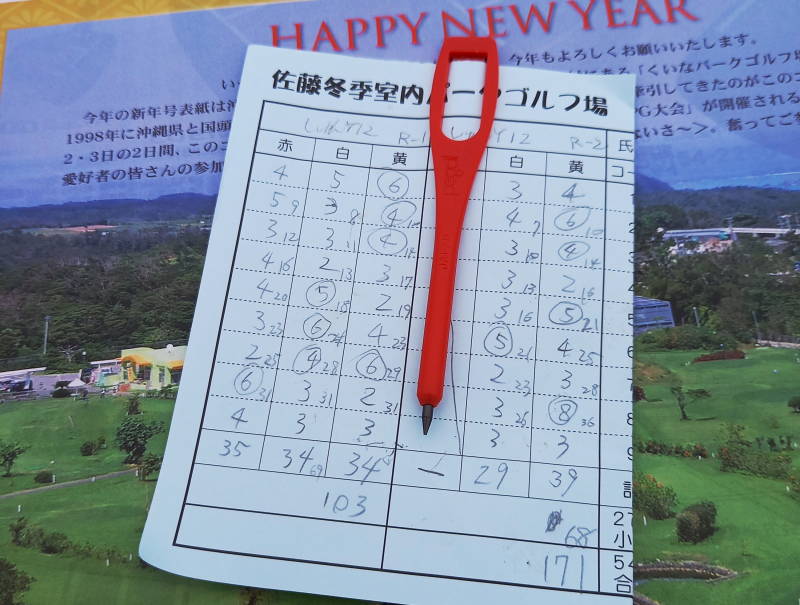 HAPPY NEW YEAR
今年もよろしくお願いいたします。
今年の新年号表紙は
にある「くいなパークゴルフ場
1998年に沖縄県と国頭
牽引してきたのがこの
2・3日の2日間、この
G大会」が開催される
愛好者の皆さんの参加
ないさ～>。奮ってご
佐藤冬季室内パークゴルフ場
R-1 12 R-2 氏
赤 白 黄 白 黄 コー
4 5 6 3 4
5 9 3 8 4 10 4 7 6 10
3 12 3 11 4 14 3 10 4 14
4 16 2 13 3 17 3 13 2 16
4 20 5 18 2 19 3 16 5 21
3 23 6 24 4 23 5 21 4 25 6
2 25 4 28 6 29 2 23 3 28
6 31 3 31 2 31 3 26 8 36 8
4 3 3 3 3 9
35 34 69 34 29 39 計
103 68 27小
171 54合